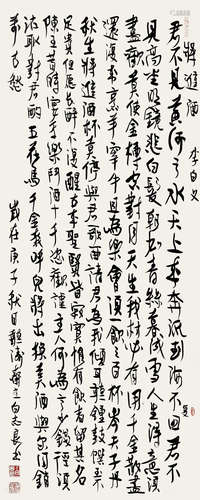 將進酒 李白
君不見黃河之水天上來奔流到海不回君不
見高堂明鏡悲白髮朝如青絲暮成雪人生得意須
盡歡莫使金樽空對月天生我材必有用千金散盡
還復來烹羊宰牛且為樂會須一飲三百杯岑夫子丹
丘生將進酒杯莫停與君歌一曲請君為我傾耳聽鐘鼓饌玉不
足貴但願長醉不復醒古來聖賢皆寂寞惟有飲者留其名
陳王昔時宴平樂斗酒十千恣歡謔主人何為言少錢徑須
沽取對君酌五花馬千金裘呼兒將出換美酒與爾同銷
萬古愁 歲在庚子秋月聽濤齋主白志良書